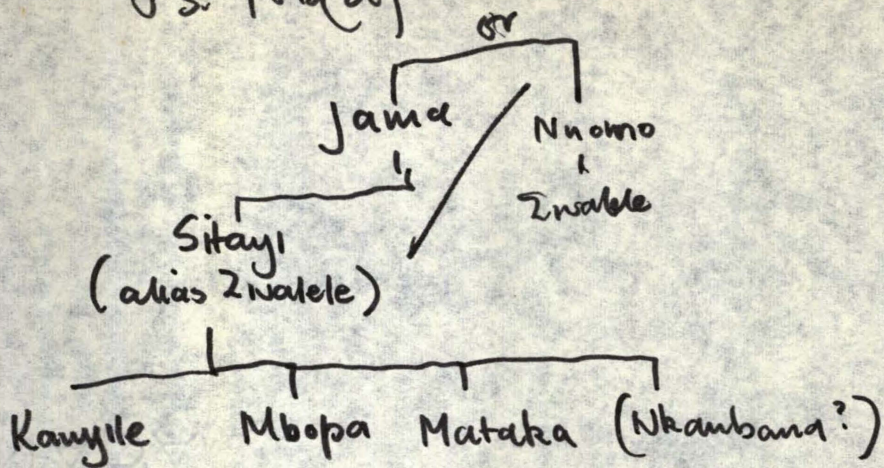 or
Jama Nnomo
Sitayi
(alias Zwalele)
Kanyile Mbopa Mataka (Nkanbana?)